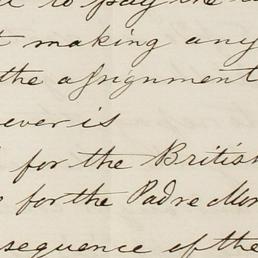 to pay the
making any
the assignment
ever is
for the British
for the Padre Mor
sequence of the